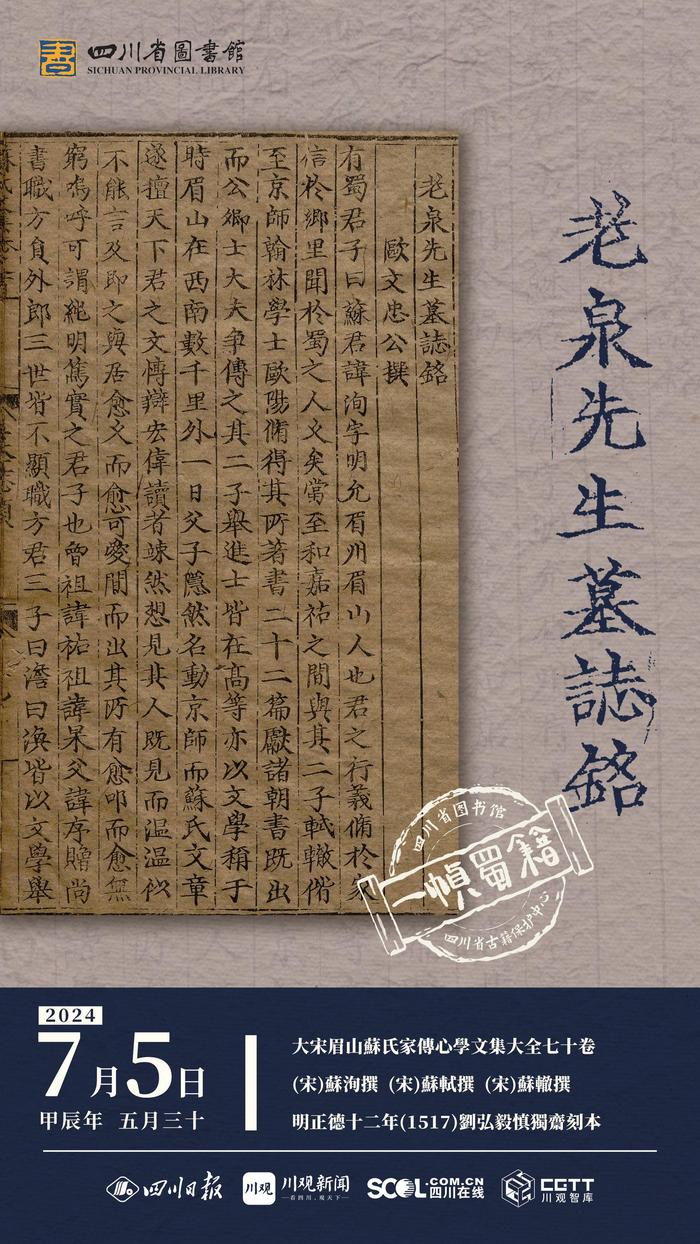 四川省圖書館
SICHUAN PROVINCIAL LIBRARY
老泉先生墓誌銘
老泉先生墓誌銘
歐文忠公撰
有蜀君子曰蘇君諱洵字明允眉州眉山人也君之行義脩於家
信於鄉里聞於蜀之人久矣當至和嘉祐之間與其二子軾轍偕
至京師翰林學士歐陽脩得其所著書二十二篇獻諸朝書既出
而公卿士大夫爭傳之其二子舉進士皆在高等亦以文學稱于
時眉山在西南數千里外一日父子隱然名動京師而蘇氏文章
遂擅天下君之文博辯宏偉讀者竦然想見其人既見而溫溫似
不能言及即之與居愈久而愈可愛間而出其所有愈叩而愈無
窮嗚呼可謂純明篤實之君子也曾祖諱祐祖諱杲父諱序贈尚
書職方員外郎三世皆不顯職方君三子曰澹曰渙皆以文學舉
四川省图书馆
一幀蜀籍
四川省古籍保护中心
2024
7月5日
甲辰年 五月三十
大宋眉山蘇氏家傳心學文集大全七十卷
(宋)蘇洵撰 (宋)蘇軾撰 (宋)蘇轍撰
明正德十二年(1517)劉弘毅慎獨齋刻本
四川日报
川观
川观新闻
—看四川,观天下—
SCOL.COM.CN
四川在线
CGTT
川观智库